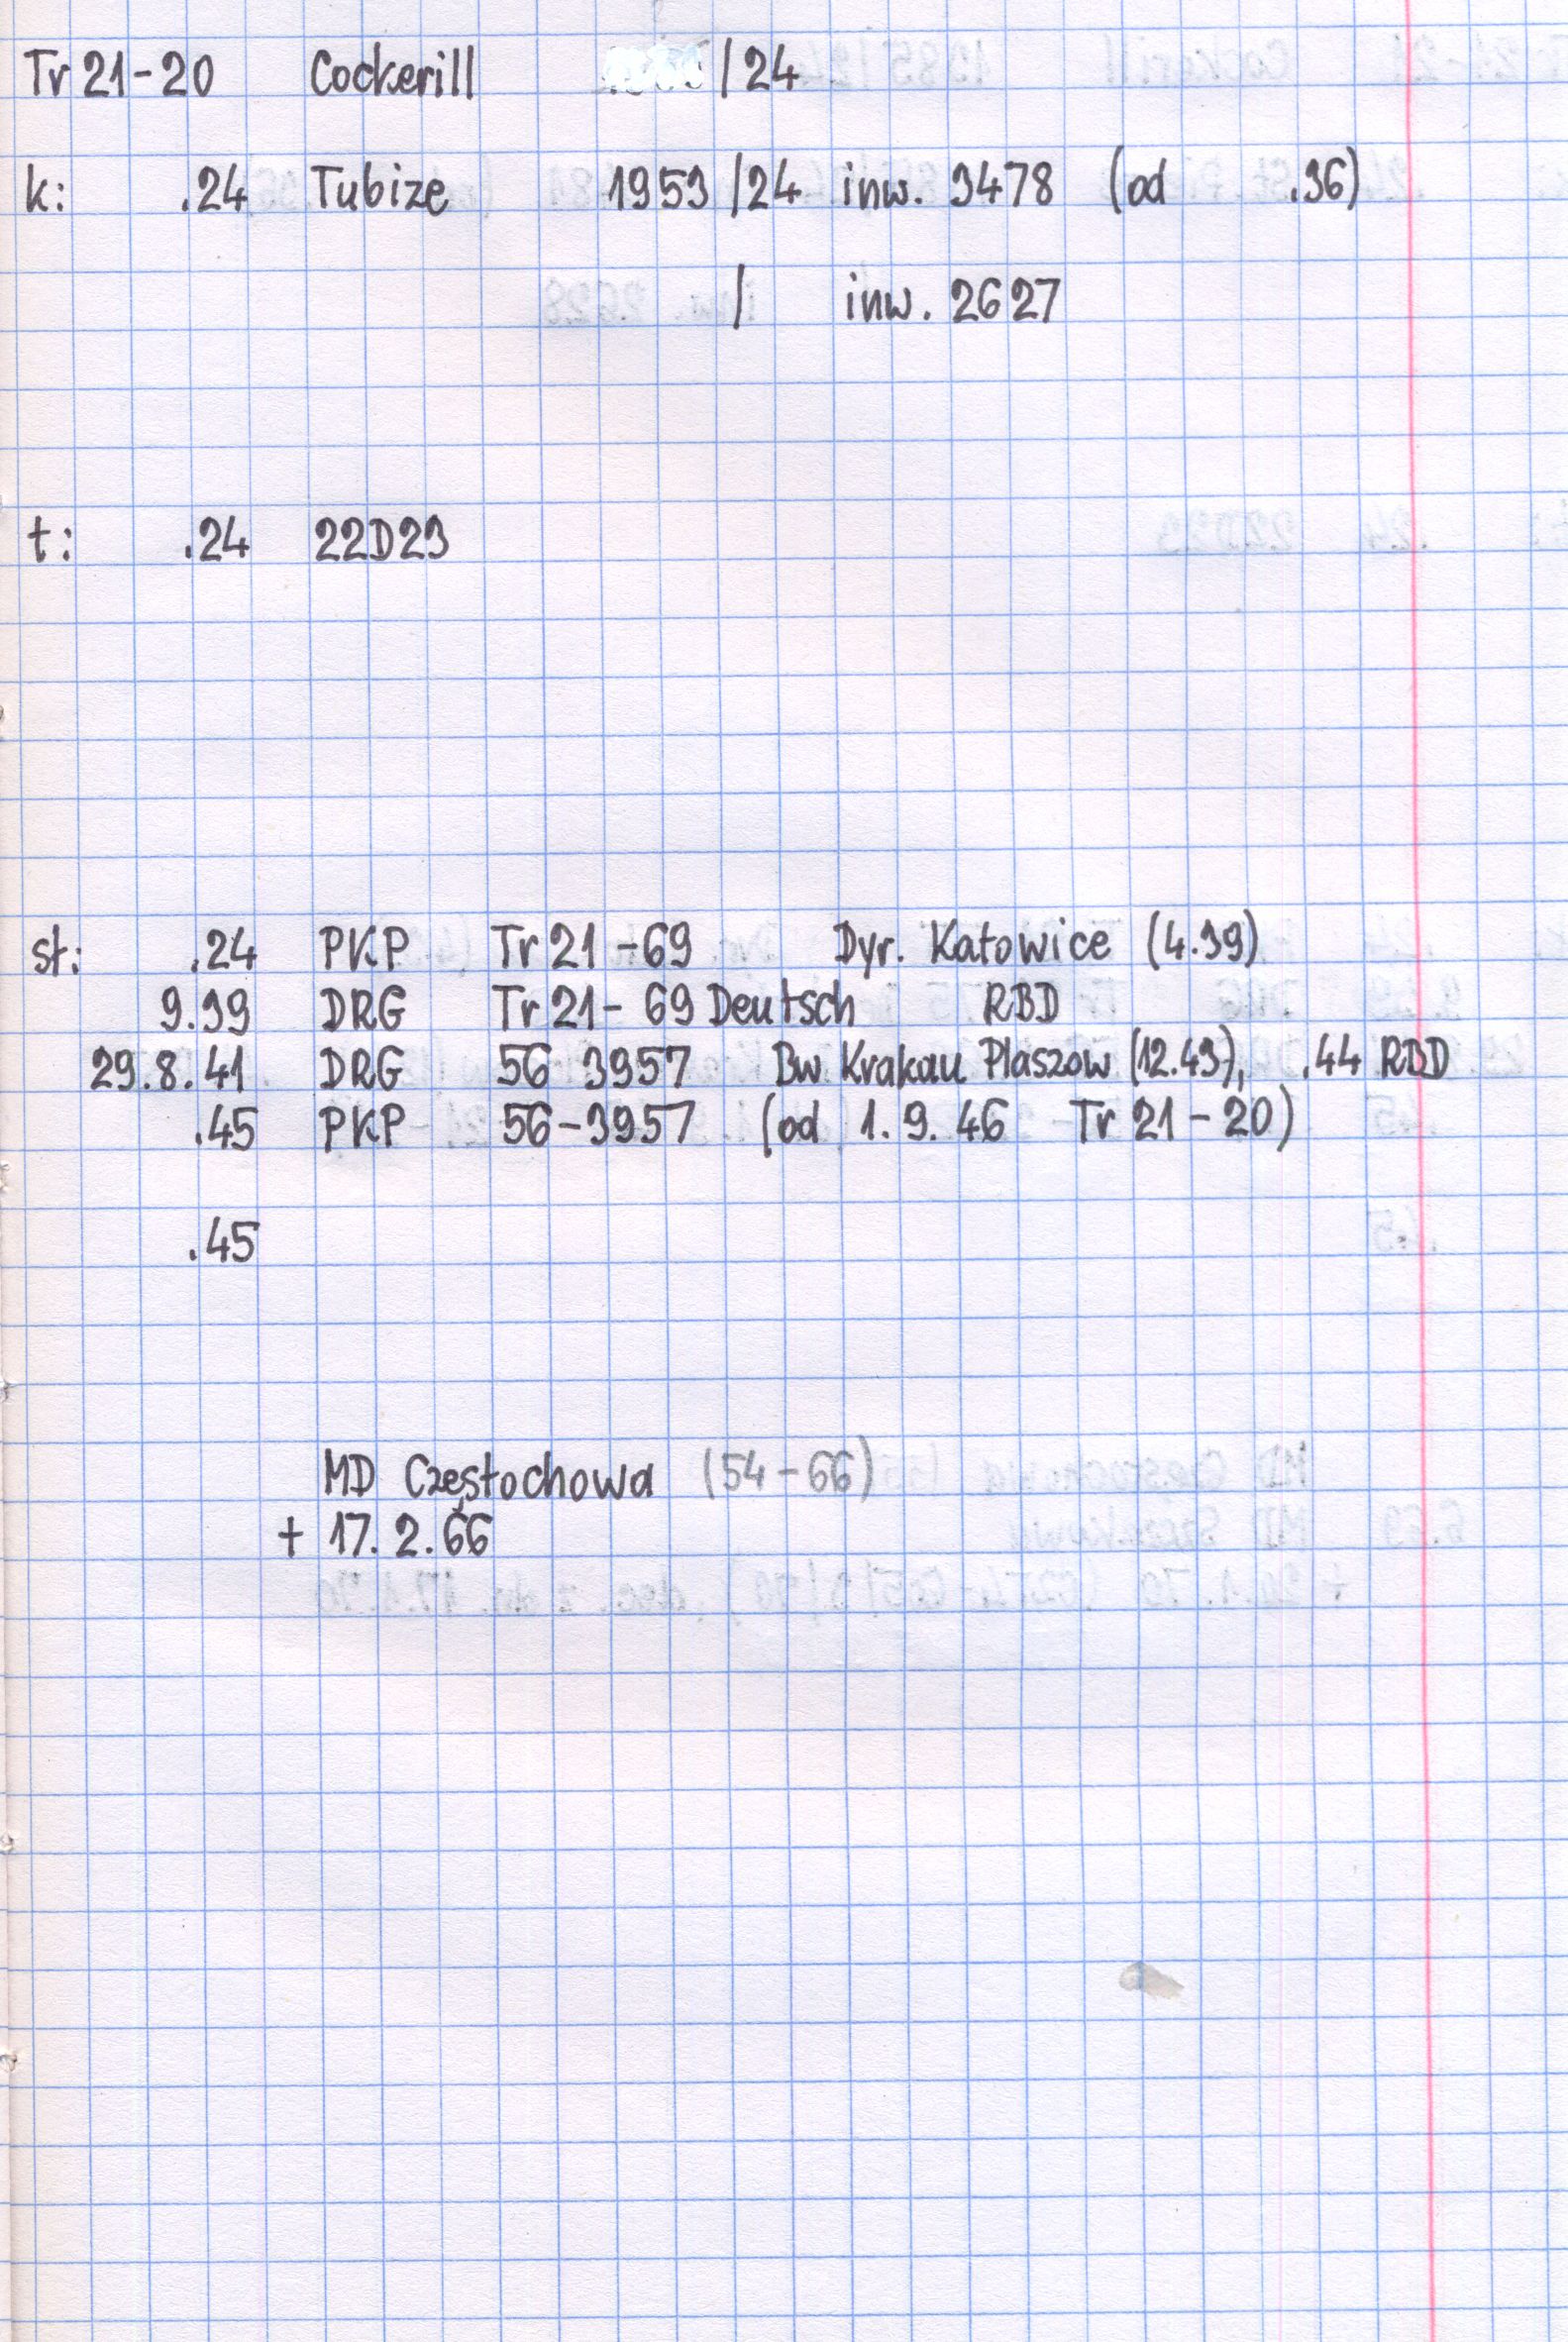 Tr 21-20 Cockerill /24
k: .24 Tubize 1953 /24 inw. 3478 (od .36)
/ inw. 2627
t: .24 22D23
st: .24 PKP Tr 21-69 Dyr. Katowice (4.39)
9.39 DRG Tr 21-69 Deutsch RBD
29.8.41 DRG 56 3957 Bw Krakau Plaszow (12.43), .44 RBD
.45 PKP 56-3957 (od 1.9.46 Tr 21-20)
.45
MD Częstochowa (54-66)
+ 17.2.66